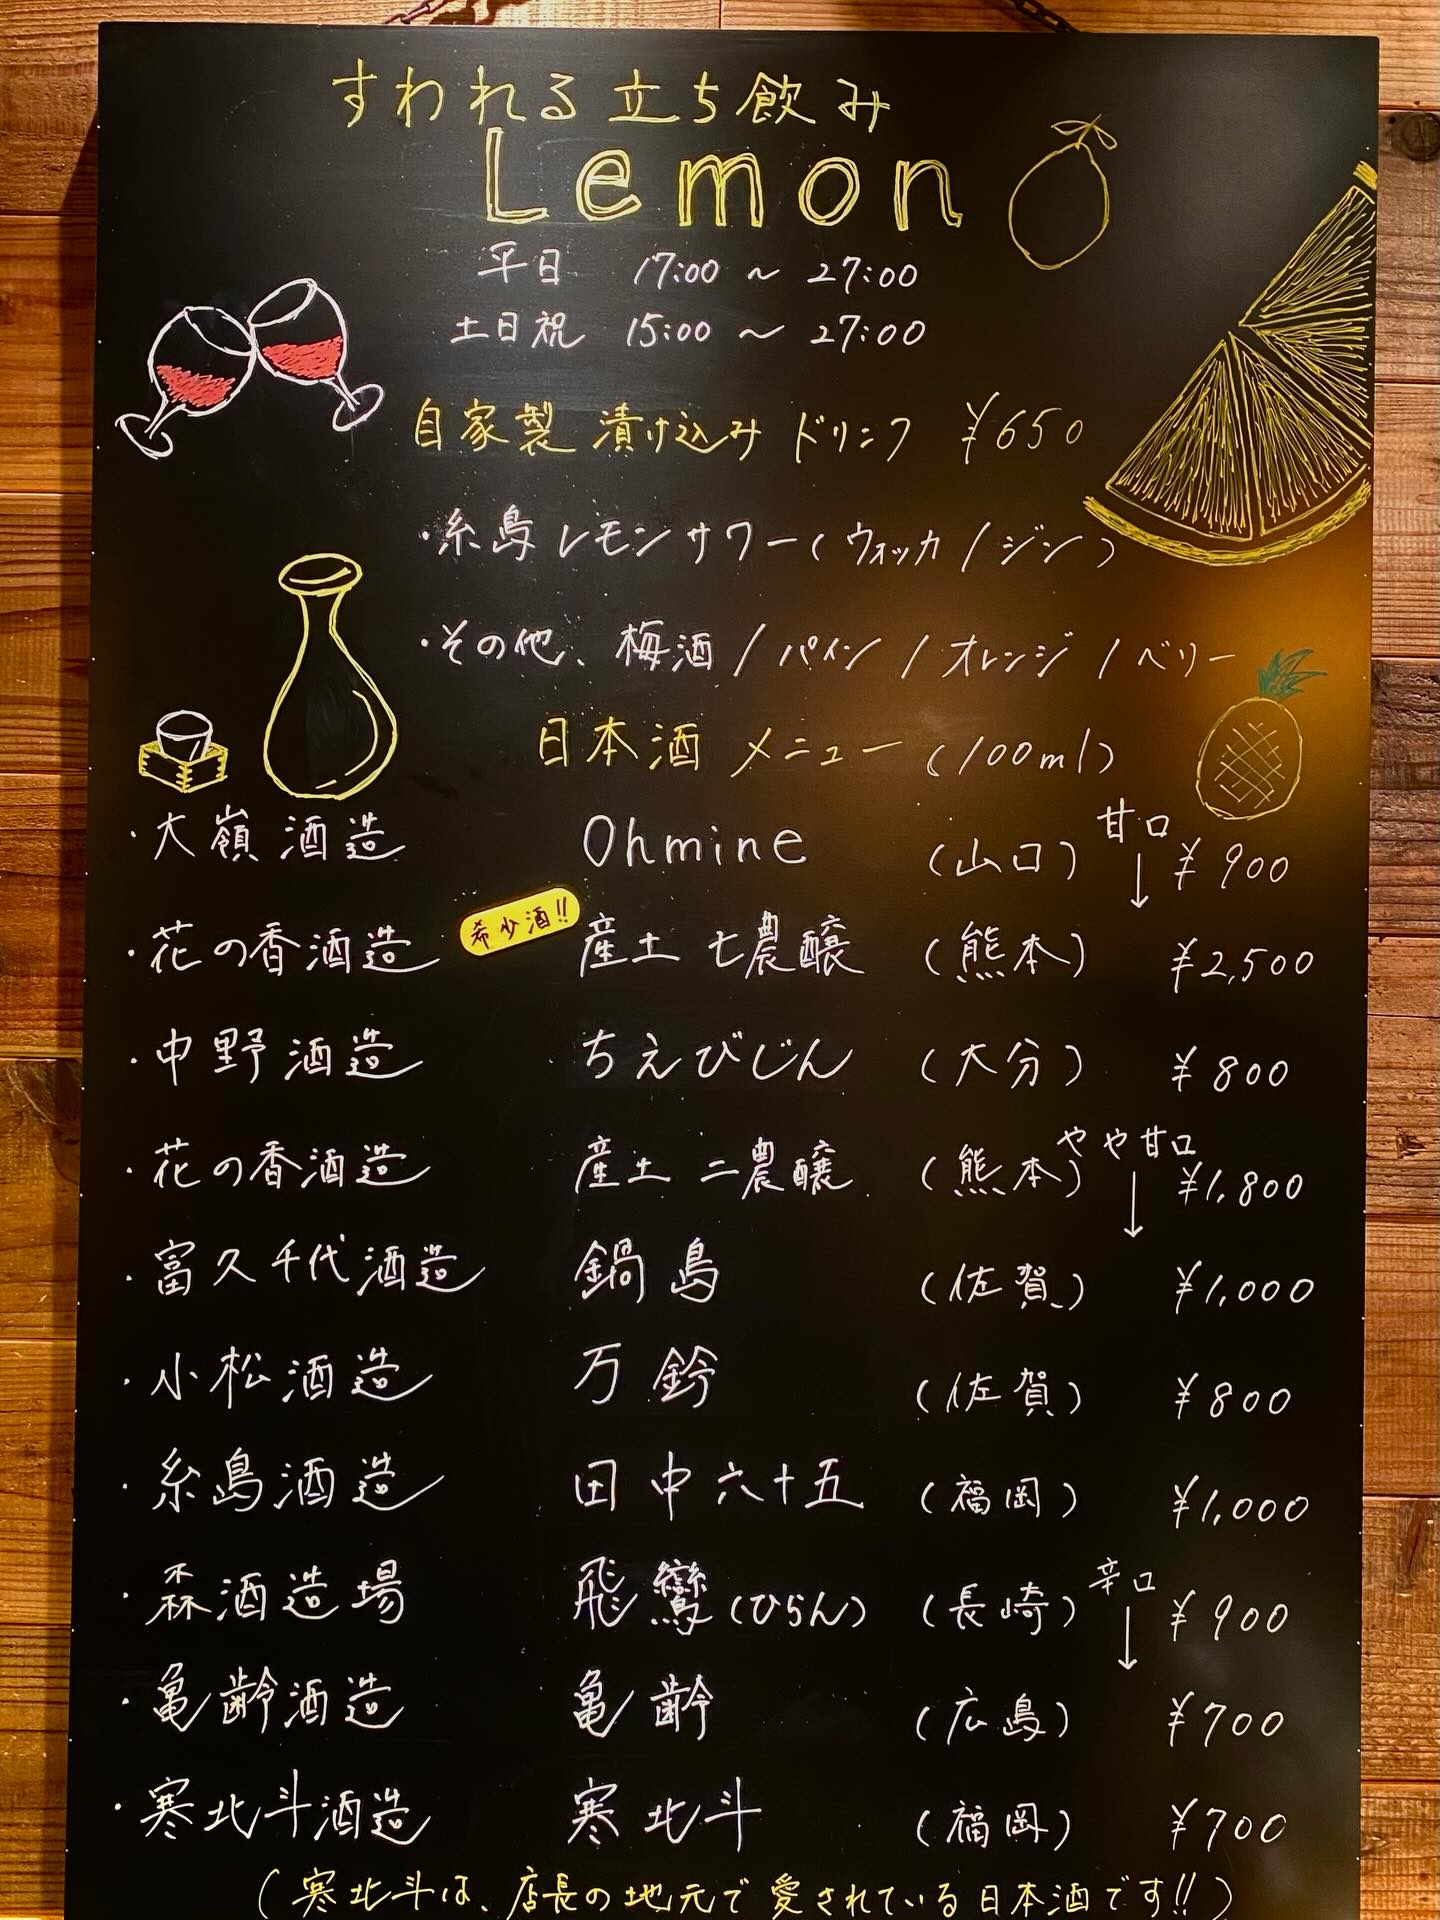 すわれる立ち飲み
Lemon
平日 17:00 ~ 27:00
土日祝 15:00 ~ 27:00
自家製 漬け込み ドリンク ¥650
・糸島レモンサワー(ウォッカ/ジン)
・その他、梅酒/パイン/オレンジ/ベリー
日本酒メニュー (100ml)
・大嶺酒造 Ohmine (山口) 甘口↓ ¥900
・花の香酒造 希少酒!! 産土 七農醸 (熊本) ¥2,500
・中野酒造 ちえびじん (大分) ¥800
・花の香酒造 産土 二農醸 (熊本) やや甘口↓ ¥1,800
・富久千代酒造 鍋島 (佐賀) ¥1,000
・小松酒造 万齢 (佐賀) ¥800
・糸島酒造 田中六十五 (福岡) ¥1,000
・森酒造場 飛鸞(ひらん) (長崎) 辛口↓ ¥900
・亀齢酒造 亀齢 (広島) ¥700
・寒北斗酒造 寒北斗 (福岡) ¥700
(寒北斗は、店長の地元で愛されている日本酒です!!)